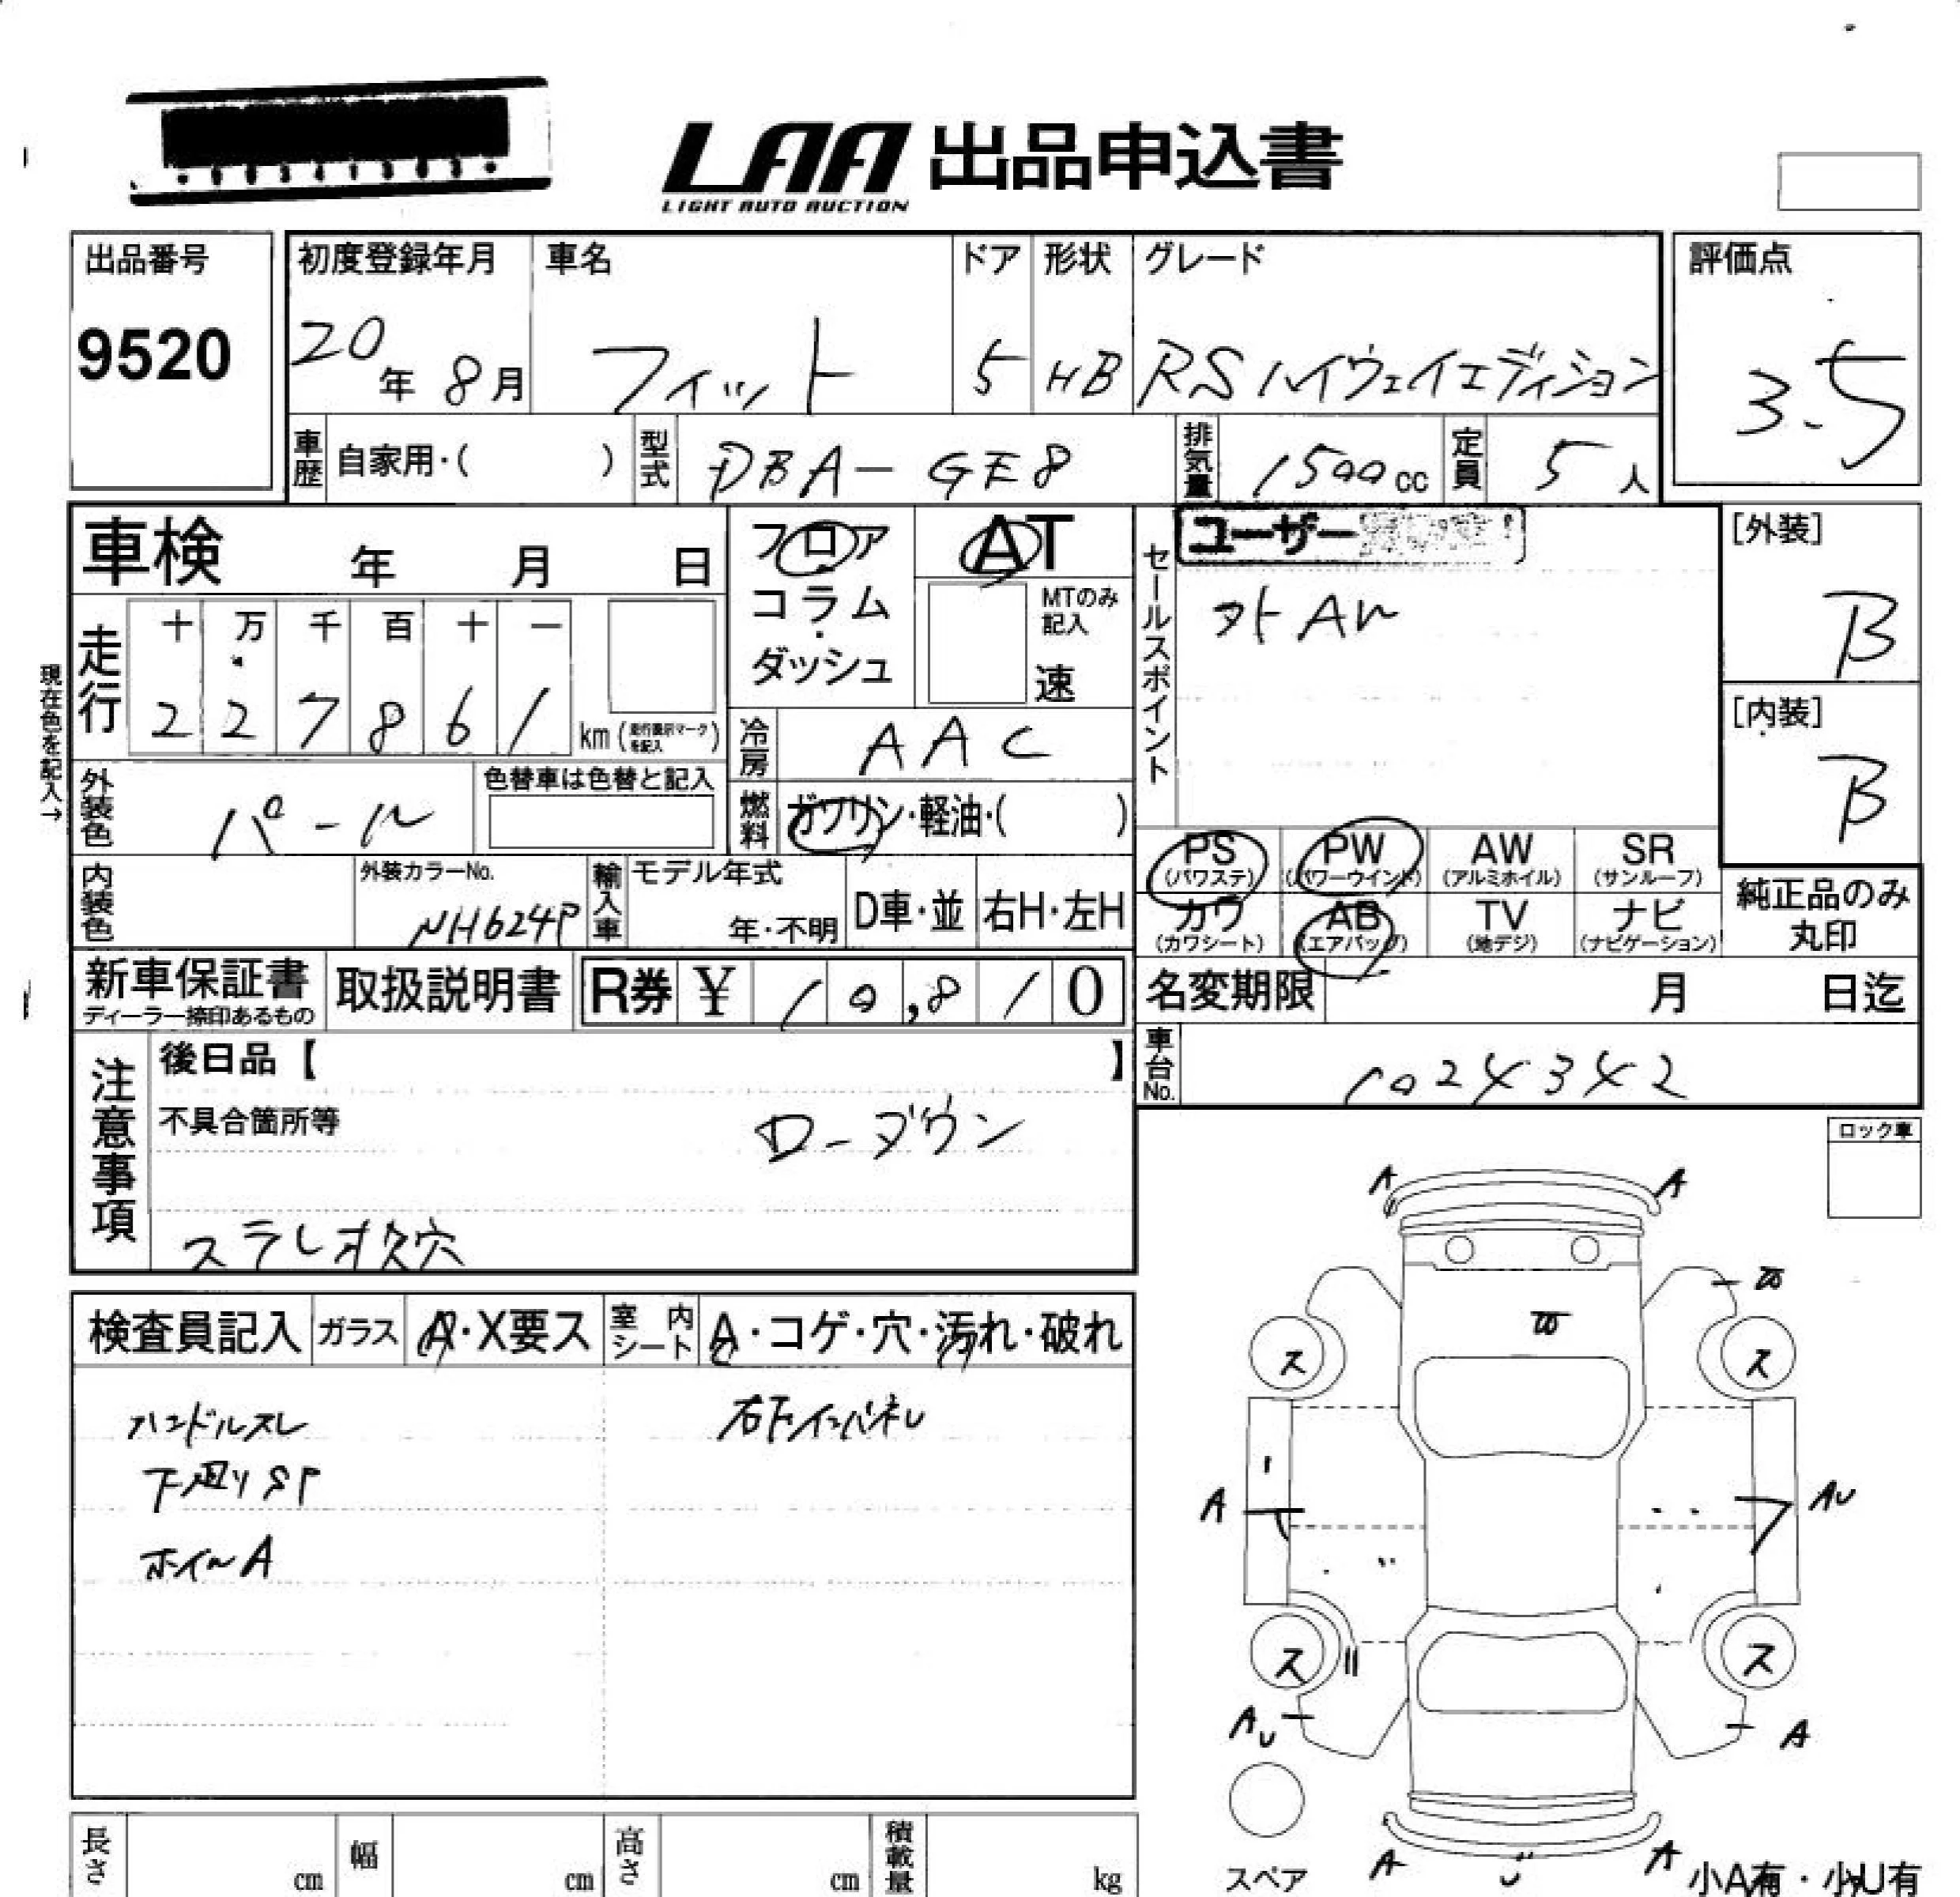 LAA 出品申込書
LIGHT AUTO AUCTION
出品番号
9520
初度登録年月
20年 8月
車名
フィット
ドア
5
形状
HB
グレード
RS ハイウェイエディション
評価点
3.5
車歴 自家用・( )
型式 DBA-GE8
排気量 1500cc
定員 5人
車検 年 月 日
フロア
コラム
・
ダッシュ
AT
MTのみ
記入
速
セールスポイント
ユーザー
外AW
[外装]
B
[内装]
B
現在色を記入→
走行
十 万 千 百 十 一
2 2 7 8 6 1 km
冷房 AAC
燃料 ガソリン・軽油・( )
外装色 パール
色替車は色替と記入
内装色
外装カラーNo.
NH624P
輸入車
モデル年式
年・不明
D車・並
右H・左H
PS (パワステ)
PW (パワーウインド)
AW (アルミホイル)
SR (サンルーフ)
カワ (カワシート)
AB (エアバッグ)
TV (地デジ)
ナビ (ナビゲーション)
純正品のみ
丸印
新車保証書
ディーラー捺印あるもの
取扱説明書
R券 ¥ 10,810
名変期限 月 日迄
車台No. 1024342
注意事項
後日品【 】
不具合箇所等
ローダウン
ステレオ欠穴
ロック車
検査員記入
ガラス A・X要ス
室内シート A・コゲ・穴・汚れ・破れ
ハンドルスレ
下廻りSP
ホイルA
右下インパネU
A A
ス ス
A AU
ス ス
AU A
スペア
A A
小A有・小U有
長さ cm
幅 cm
高さ cm
積載量 kg